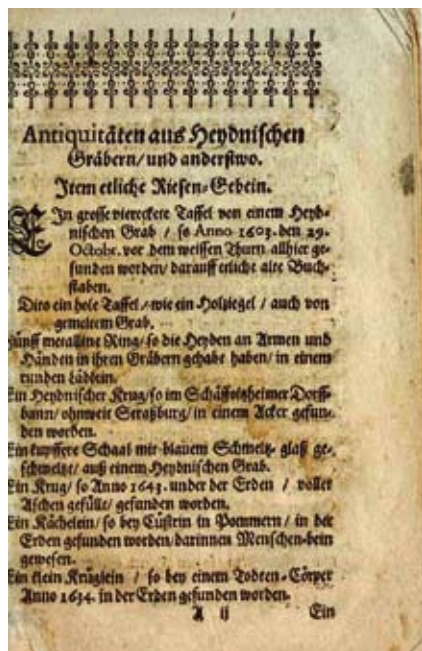 Antiquitäten aus Heydnischen
Gräbern/ und anderstwo.
Item etliche Riesen-Gebein.
EIn grosse viereckete Taffel von einem Heyd-
nischen Grab / so Anno 1603. den 29.
Octobr. vor dem weissen Thurn allhier ge-
funden worden/ darauff etliche alte Buch-
staben.
Dito ein hole Taffel/ wie ein Holziegel / auch von
gemeltem Grab.
Fünff metalline Ring/ so die Heyden an Armen und
Händen in ihren Gräbern gehabt haben/ in einem
runden Lädlein.
Ein Heydnischer Krug/ so im Schäffolzheimer Dorff-
bann/ ohnweit Straßburg/ in einem Acker gefun-
den worden.
Ein kupffere Schaal mit blauem Schmeltz-glaß ge-
schmeltzt/ auß einem Heydnischen Grab.
Ein Krug/ so Anno 1643. under der Erden / voller
Aschen gefüllt/ gefunden worden.
Ein Kächelein/ so bey Cüstrin in Pommern/ in der
Erden gefunden worden/ darinnen Menschen-bein
gewesen.
Ein klein Krüglein / so bey einem Todten-Cörper
Anno 1634. in der Erden gefunden worden.
A ij Ein